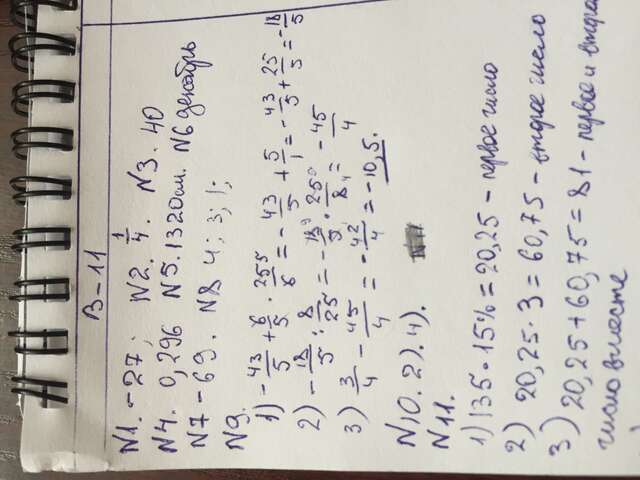 В-11
N1. -27; N2. 1/4. N3. 40
N4. 0,296 N5. 1320см. N6 декабрь
N7 - 69. N8 4; 3; 1;
N9.
1) -43/5 + 6/5 · 25 5/6 = -43/5 + 5/1 = -43/5 + 25/5 = -18/5
2) -18/5 : 8/25 = -18 9/5 · 25/8 4 = -45/4
3) 3/4 - 45/4 = -42/4 = -10,5.
N10. 2). 4).
N11.
1) 135 · 15% = 20,25 - первое число
2) 20,25 · 3 = 60,75 - второе число
3) 20,25 + 60,75 = 81 - первое и второе
число вместе